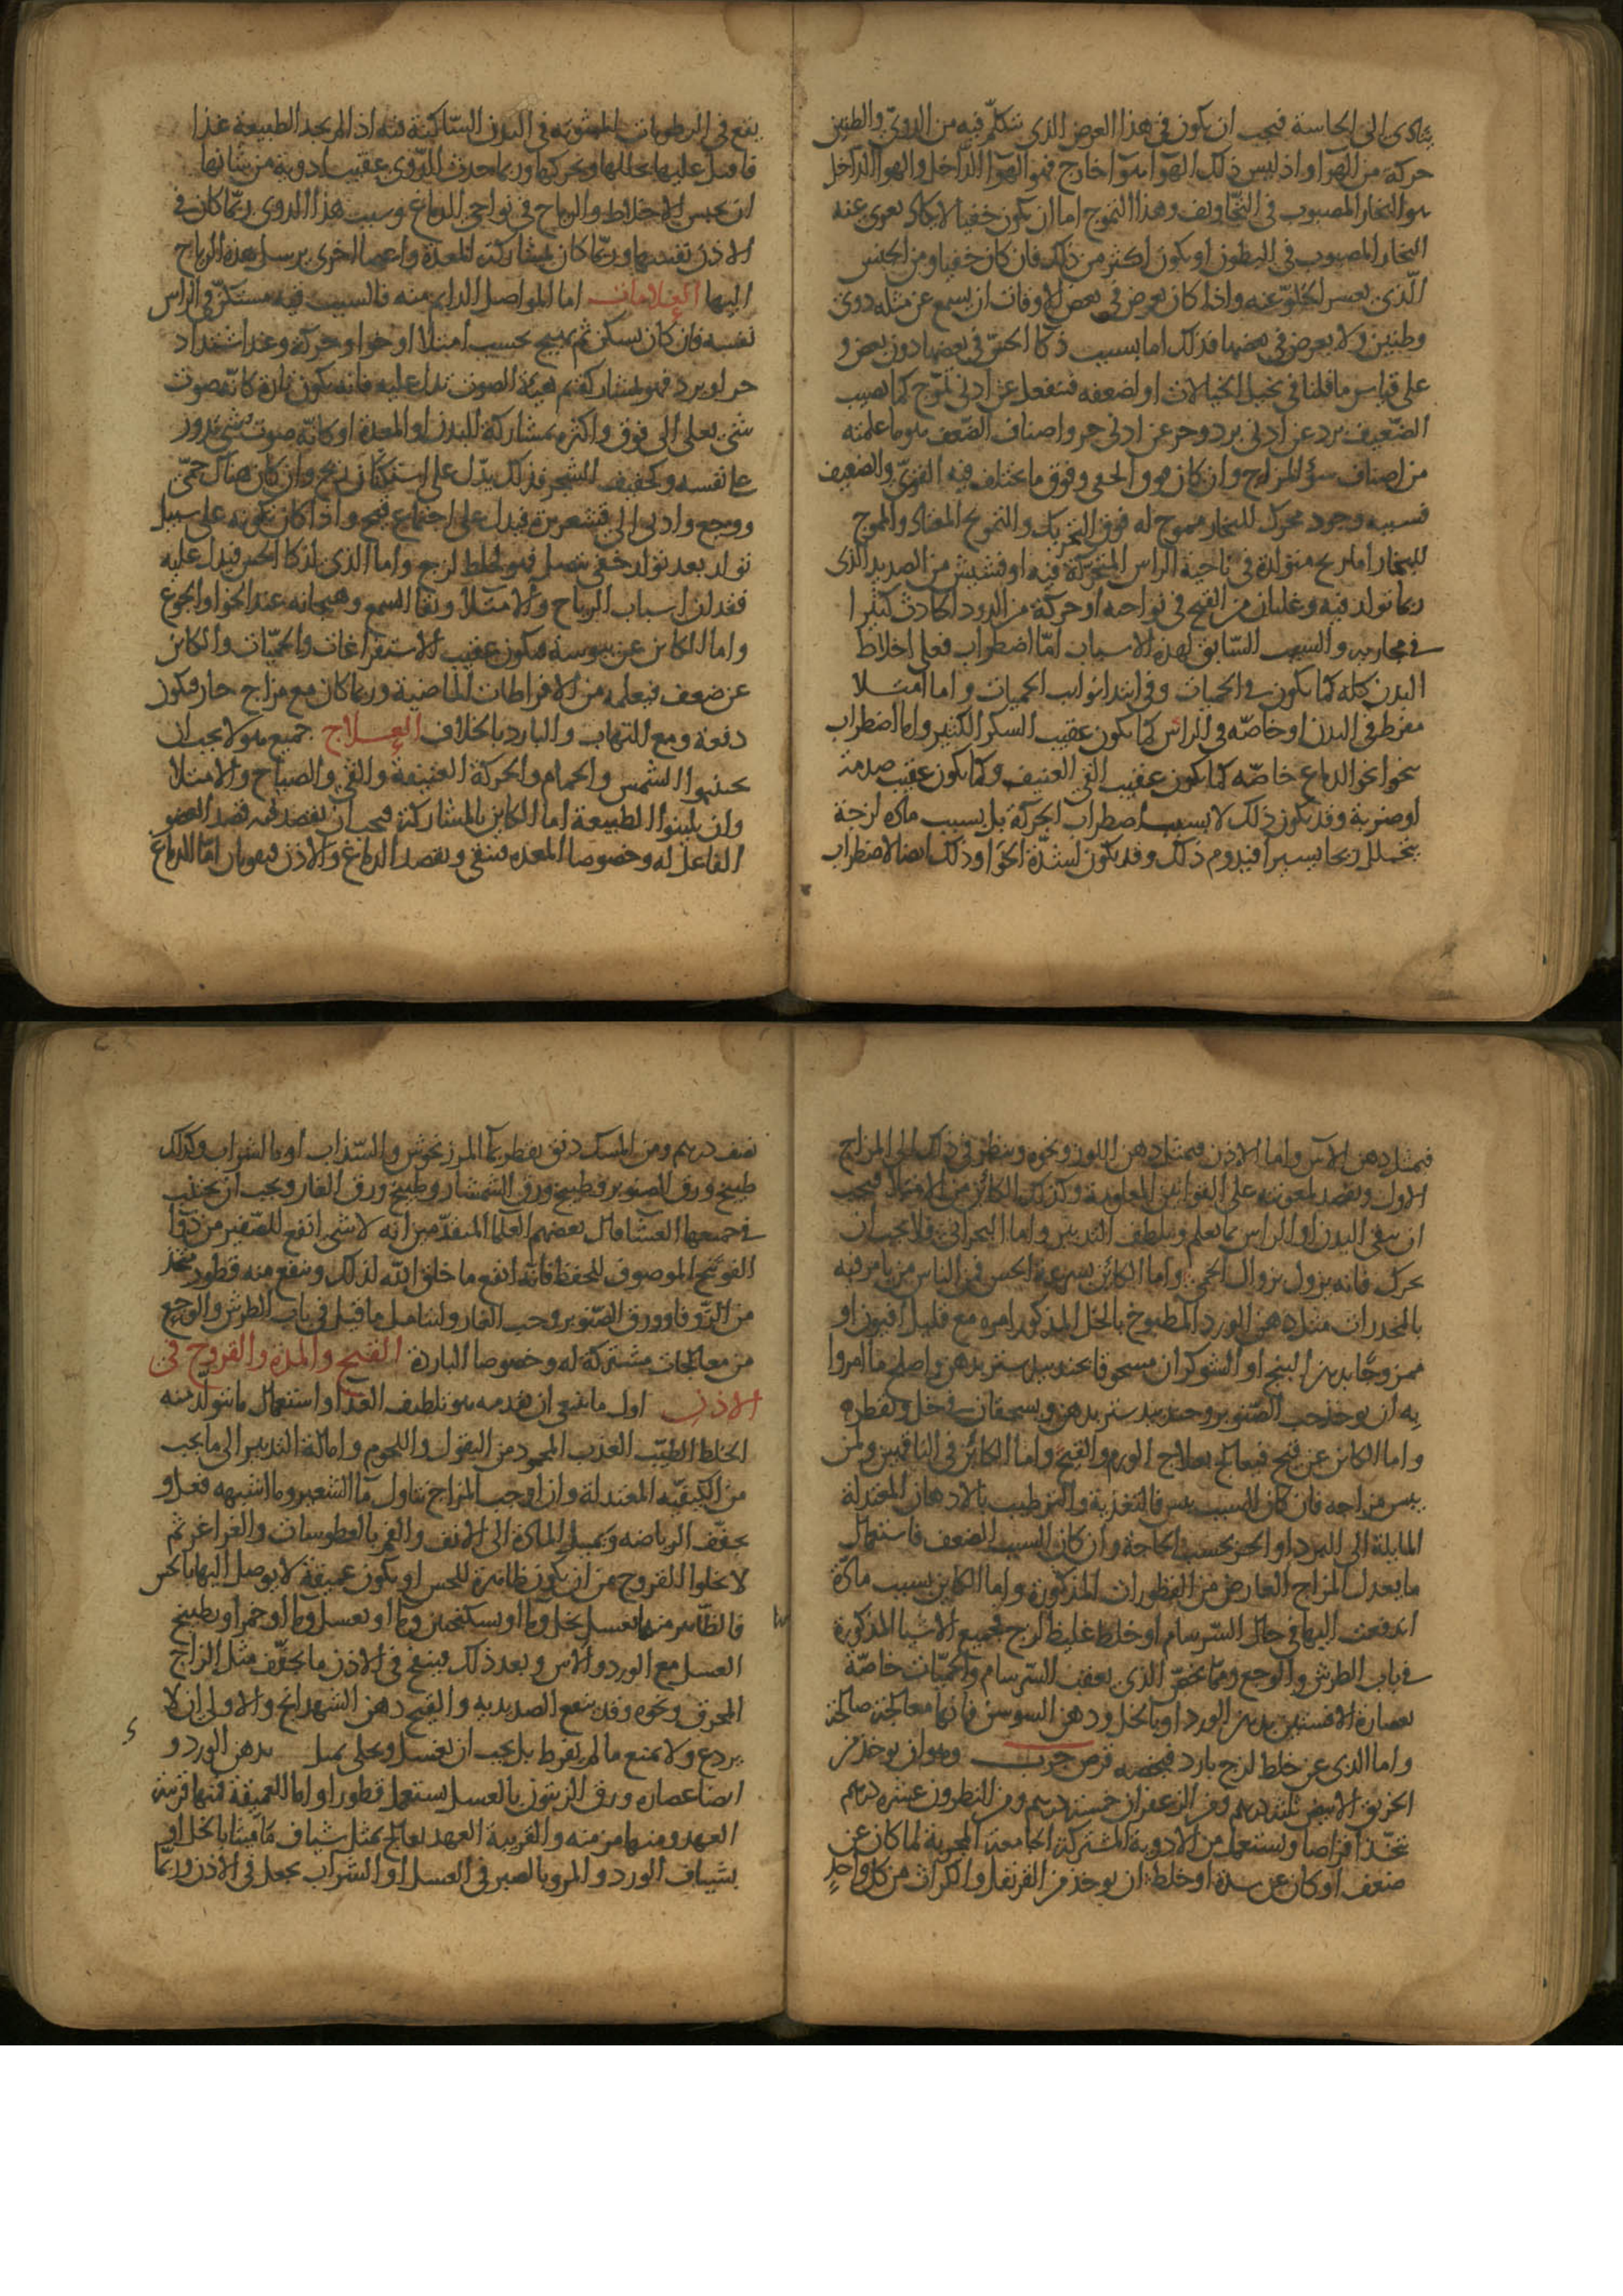 يتادى الى الحاسة فيجب ان يكون في هذا العرض الذي نتكلم فيه من الدوي والطنين
حركة من الهوا واذ ليس ذلك الهوا هوا خارج فهو الهوا الداخل والهوا الداخل
هو البخار المصبوب في التجاويف وهذا التموج اما ان يكون خفيا لا يكاد يعرى عنه
البخار المصبوب في البطون او يكون اكثر من ذلك فان كان خفيا ومن الجنس
الذي يعسر الخلو عنه واذا كان يعرض في بعض الاوقات ان يسمع عن مثله دوي
وطنين ولا يعرض في بعضها فذلك اما بسبب ذكا الحس في بعضها دون بعض و
على قياس ما قلنا في تخيل الخيالات او لضعفه فينفعل عن ادنى تموج كما يصيب
الضعيف برد عن ادنى برد وحر عن ادنى حر واصناف الضعف هو ما علمته
من اصناف سؤ المزاج وان كان هو الخفي وفوق ما يختلف فيه القوي والضعيف
فسببه وجود محرك للبخار مموج له فوق التحريك والتمويج المعتاد والمموج
للبخار اما ريح متولدة في ناحية الراس المتحركة فيه او نشيش من الصديد الذي
ربما تولد فيه وغليان من القيح في نواحيه او حركة من الدود الحادث كثيرا
في مجاريه والسبب السابق لهذه الاسباب اما اضطراب فعلى اخلاط
البدن كله كما يكون في الحميات وفي ابتدا نوايب الحميات واما امتلا
مفرط في البدن او خاصه في الراس كما يكون عقيب السكر الكثير واما اضطراب
نحو الدماغ خاصه كما يكون عقيب القي العنيف وكما يكون عقيب صدمة
او ضربة وقد يكون ذلك لا بسبب اضطراب الحركة بل بسبب مادة لزجة
يتحلل ريحا يسيرا فيدوم ذلك وقد يكون لشدة الخوا وذلك ايضا لاضطراب
يقع في الرطوبات المبثوثة في البدن الساكنة فيه اذا لم يجد الطبيعة غذا
فاقبل عليها يحللها ويحركها وربما حدث الدوي عقيب ادوية من شانها
ان يحبس الاخلاط والرياح في نواحي الدماغ وسبب هذا الدوي ربما كان في
الاذن نفسها وربما كان لمشاركة للمعدة واعضا اخرى يرسل هذه الرياح
اليها العلامات اما المواصل الدايم منه فالسبب فيه مستكن في الراس
نفسه فان كان يسكن ثم يهيج بحسب امتلا او خوا او حركة وعند اشتداد
حر او برد فهو بمشاركة ثم هيئة الصوت تدل عليه فانه يكون تارة كانه صوت
شي يعلى الى فوق واكثره بمشاركة للبدن او المعدة او كانه صوت شي يدور
على نفسه وكحفيف للشجر فذلك يدل على استكنان ريح وان كان هناك حمى
ووجع وادى الى قشعريرة فيدل على اجتماع قيح واذا كان تكونه على سبيل
تولد بعد تولد خفي متصل فهو لخلط لزج واما الذي لذكا الحس فيدل عليه
فقدان اسباب الرياح والامتلا ونقا السمع وهيجانه عند الخوا والجوع
واما الكاين عن يبوسة فيكون عقيب الاستفراغات والحميات والكاين
عن ضعف فيعلمه من الافراطات الماضية وربما كان مع مزاج حار فيكون
دفعة ومع للتهاب والبارد بالخلاف العلاج جميع هولا يجب ان
يجتنبوا الشمس والحمام والحركة العنيفة والقي والصياح والامتلا
وان يلينوا الطبيعة اما الكاين بالمشاركة فيجب ان يقصد فيه قصد العضو
الفاعل له وخصوصا المعده فينقي ويقصد الدماغ والاذن فيقويان اما الدماغ
فبمثل دهن الاس واما الاذن فبمثل دهن اللوز ونحوه وينظر في ذلك الى المزاج
الاول ويقصد لمعونته على القوانين المعلومة وكذلك الكائن من الامتلا فيجب
ان ينقي البدن او الراس بما يعلم ويلطف التدبير واما البحراني فلا يجب ان
يحرك فانه يزول بزوال الحمى واما الكائن بسرعة الحس فمن الناس من يامر فيه
بالمخدرات مثل دهن الورد المطبوخ بالخل المذكور امره مع قليل افيون او
ممزوجا بدهن البنج او الشوكران مسحوقا بجندبيدستر بدهن واصلح ما امروا
به ان يوخذ حب الصنوبر وجندبيدستر بدهن ويسحقان في خل ويقطر
واما الكاين عن قيح فيعالج بعلاج الورم والقيح واما الكائن في الناقهين ولمن
يبس مزاجه فان كان السبب يبس فالتغذية والترطيب بالادهان المعتدلة
المايلة الى البرد او الحر بحسب الحاجة وان كان السبب الضعف فاستعمال
ما يعدل المزاج العارض من القطورات المذكورة واما الكاين بسبب مادة
اندفعت اليها في حال السرسام او خلط غليظ لزج فجميع الاشيا المذكورة
في باب الطرش والوجع ومما يخص الذي يعقب السرسام والحميات خاصة
عصارة الافسنتين بدهن الورد او بالخل ودهن السوسن فانها معالجة صالحة
واما الذي عن خلط لزج بارد فيخصه قرص جرب وهو ان يوخذ من
الخربق الابيض ثلثه درهم ومن الزعفران خمسة درهم ومن النطرون عشره درهم
يتخذ اقراصا ويستعمل من الادوية المشتركة الجامعة المجربة لما كان عن
ضعف او كان عن سدة او خلط ان يوخذ من القرنفل والكراث من كل واحد
نصف درهم ومن المسك دنق يقطر بما المرزنجوش والسذاب او بالشراب وكذلك
طبيخ ورق الصنوبر وطبيخ ورق الشمشار وطبيخ ورق الغار ويجب ان يجتنب
في جميعها العشا قال بعضهم العلما المتقدمين انه لا شي انفع للصفير من دوا
الفوتنج الموصوف للحفظ فانه انفع ما خلق الله لذلك وينفع منه قطور متخذ
من الزوفا وورق الصنوبر وحب الغار ولتتامل ما قيل في باب الطرش والوجع
من معالجات مشتركة له وخصوصا الباردة القيح والمدة والقروح في
الاذن اول ما ينبغي ان يقدمه هو تلطيف الغذا واستعمال ما يتولد منه
الخلط الطيب العذب المحمود من البقول واللحوم وامالة التدبير الى ما يجب
من الكيفيه المعتدلة وان اوجب المزاج تناول ما الشعير وما اشبهه فعل و
يخفف الرياضه وتميل المادة الى الانف والفم بالعطوسات والغراغر ثم
لا يخلوا القروح من ان يكون ظاهرة للحس او يكون عميقة لا يوصل اليها بالحس
فالظاهر منها يغسل بخل وما او بسكنجبين وما او بعسل وما او خمر او بطبيخ
العسل مع الورد والاس وبعد ذلك فينفخ في الاذن ما يجفف مثل الزاج
المحرق ونحوه وقد ينفع الصديديه والقيح دهن الشهدانج والاولى ان لا
يردع ولا يمنع ما لم يفرط بل يجب ان يغسل ويجلى بمثل بدهن الورد و
ايضا عصارة ورق الزيتون بالعسل يستعمل قطورا واما العميقة فمنها قريبة
العهد ومنها مزمنه والقريبة العهد يعالج بمثل شياف ماميثا بالخل او
بشياف الورد والمر وبالصبر في العسل او الشراب يجعل في الاذن وربما